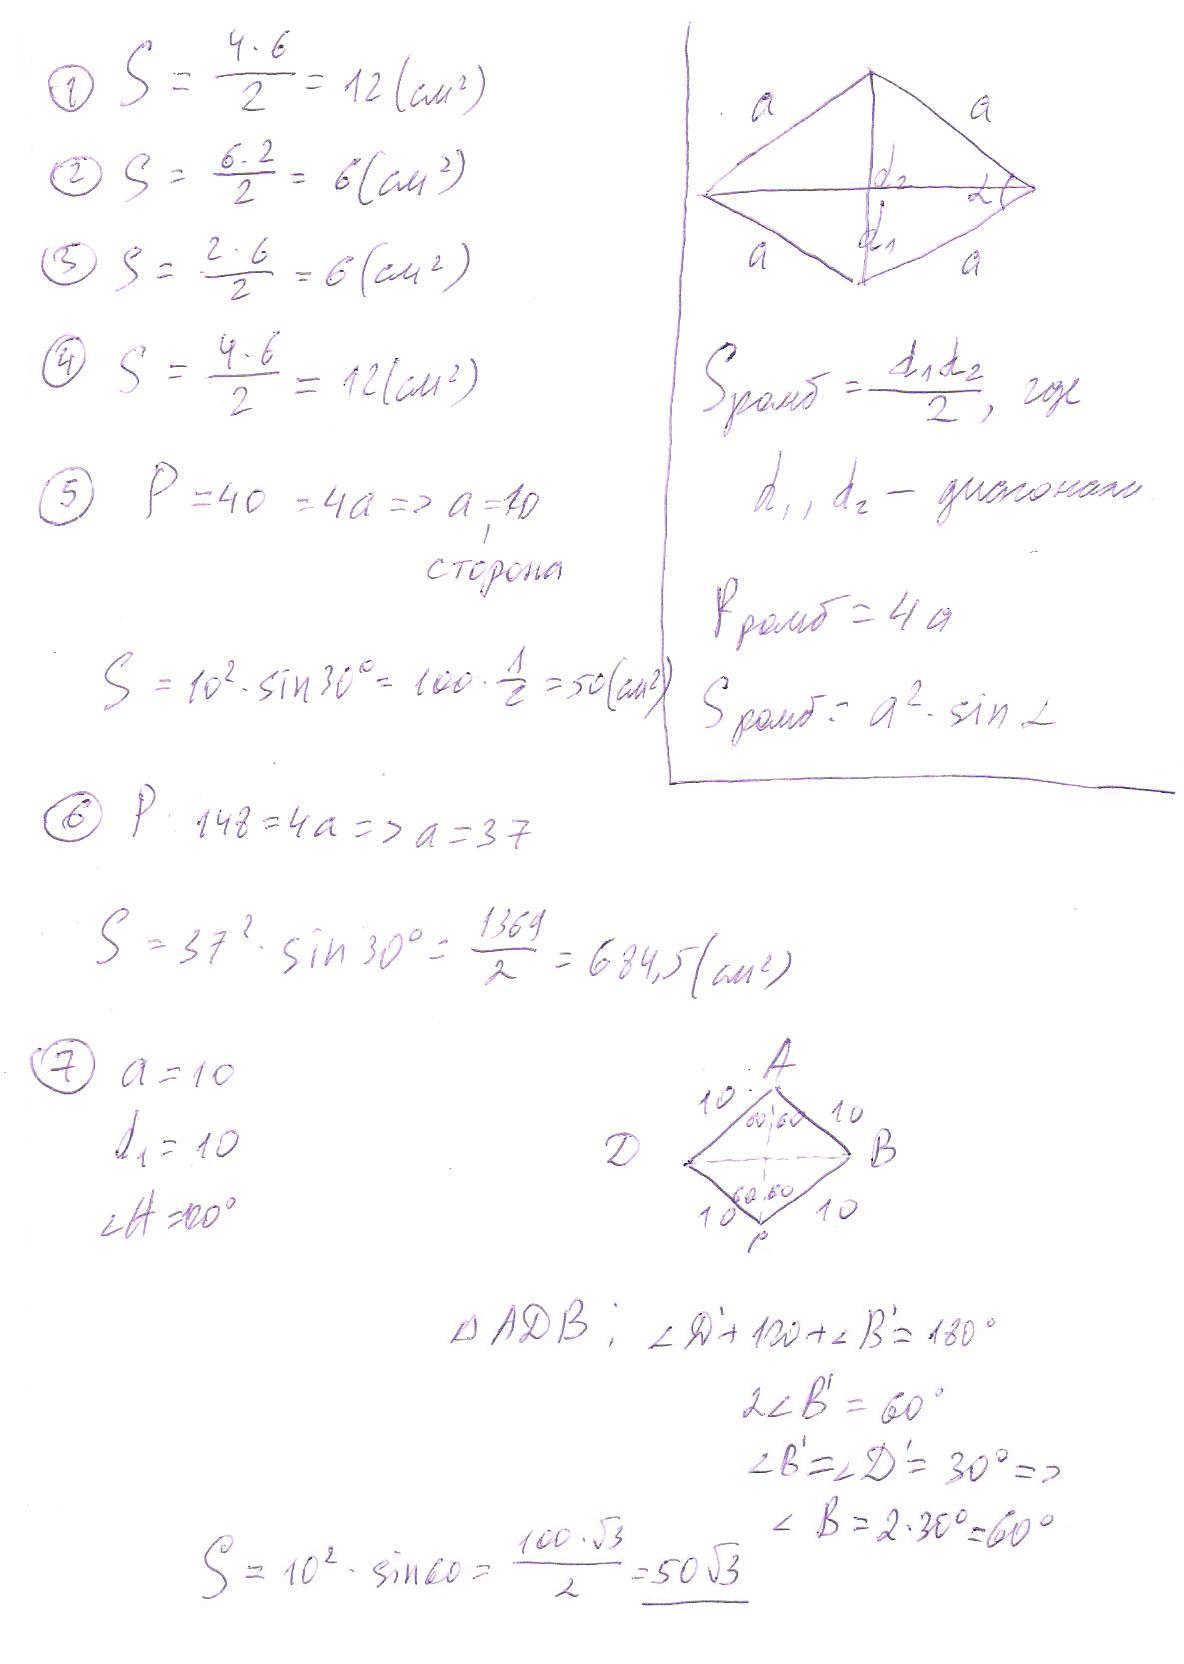 ① S = 4·6/2 = 12 (см²)
② S = 6·2/2 = 6 (см²)
③ S = 2·6/2 = 6 (см²)
④ S = 4·6/2 = 12 (см²)
⑤ P = 40 = 4a => a = 10
сторона
S = 10²·sin30° = 100·1/2 = 50 (см²)
a a
d₂ ∠
d₁
a a
Sромб = d₁d₂/2, где
d₁, d₂ – диагонали
Pромб = 4a
Sромб = a²·sin∠
⑥ P 148 = 4a => a = 37
S = 37²·sin30° = 1369/2 = 684,5 (см²)
⑦ a = 10
d₁ = 10
∠A = 120°
A
10 60 60 10
D B
60 60
10 10
C
△ADB: ∠D' + 120 + ∠B' = 180°
2∠B' = 60°
∠B' = ∠D' = 30° =>
∠B = 2·30° = 60°
S = 10²·sin60 = 100·√3/2 = 50√3